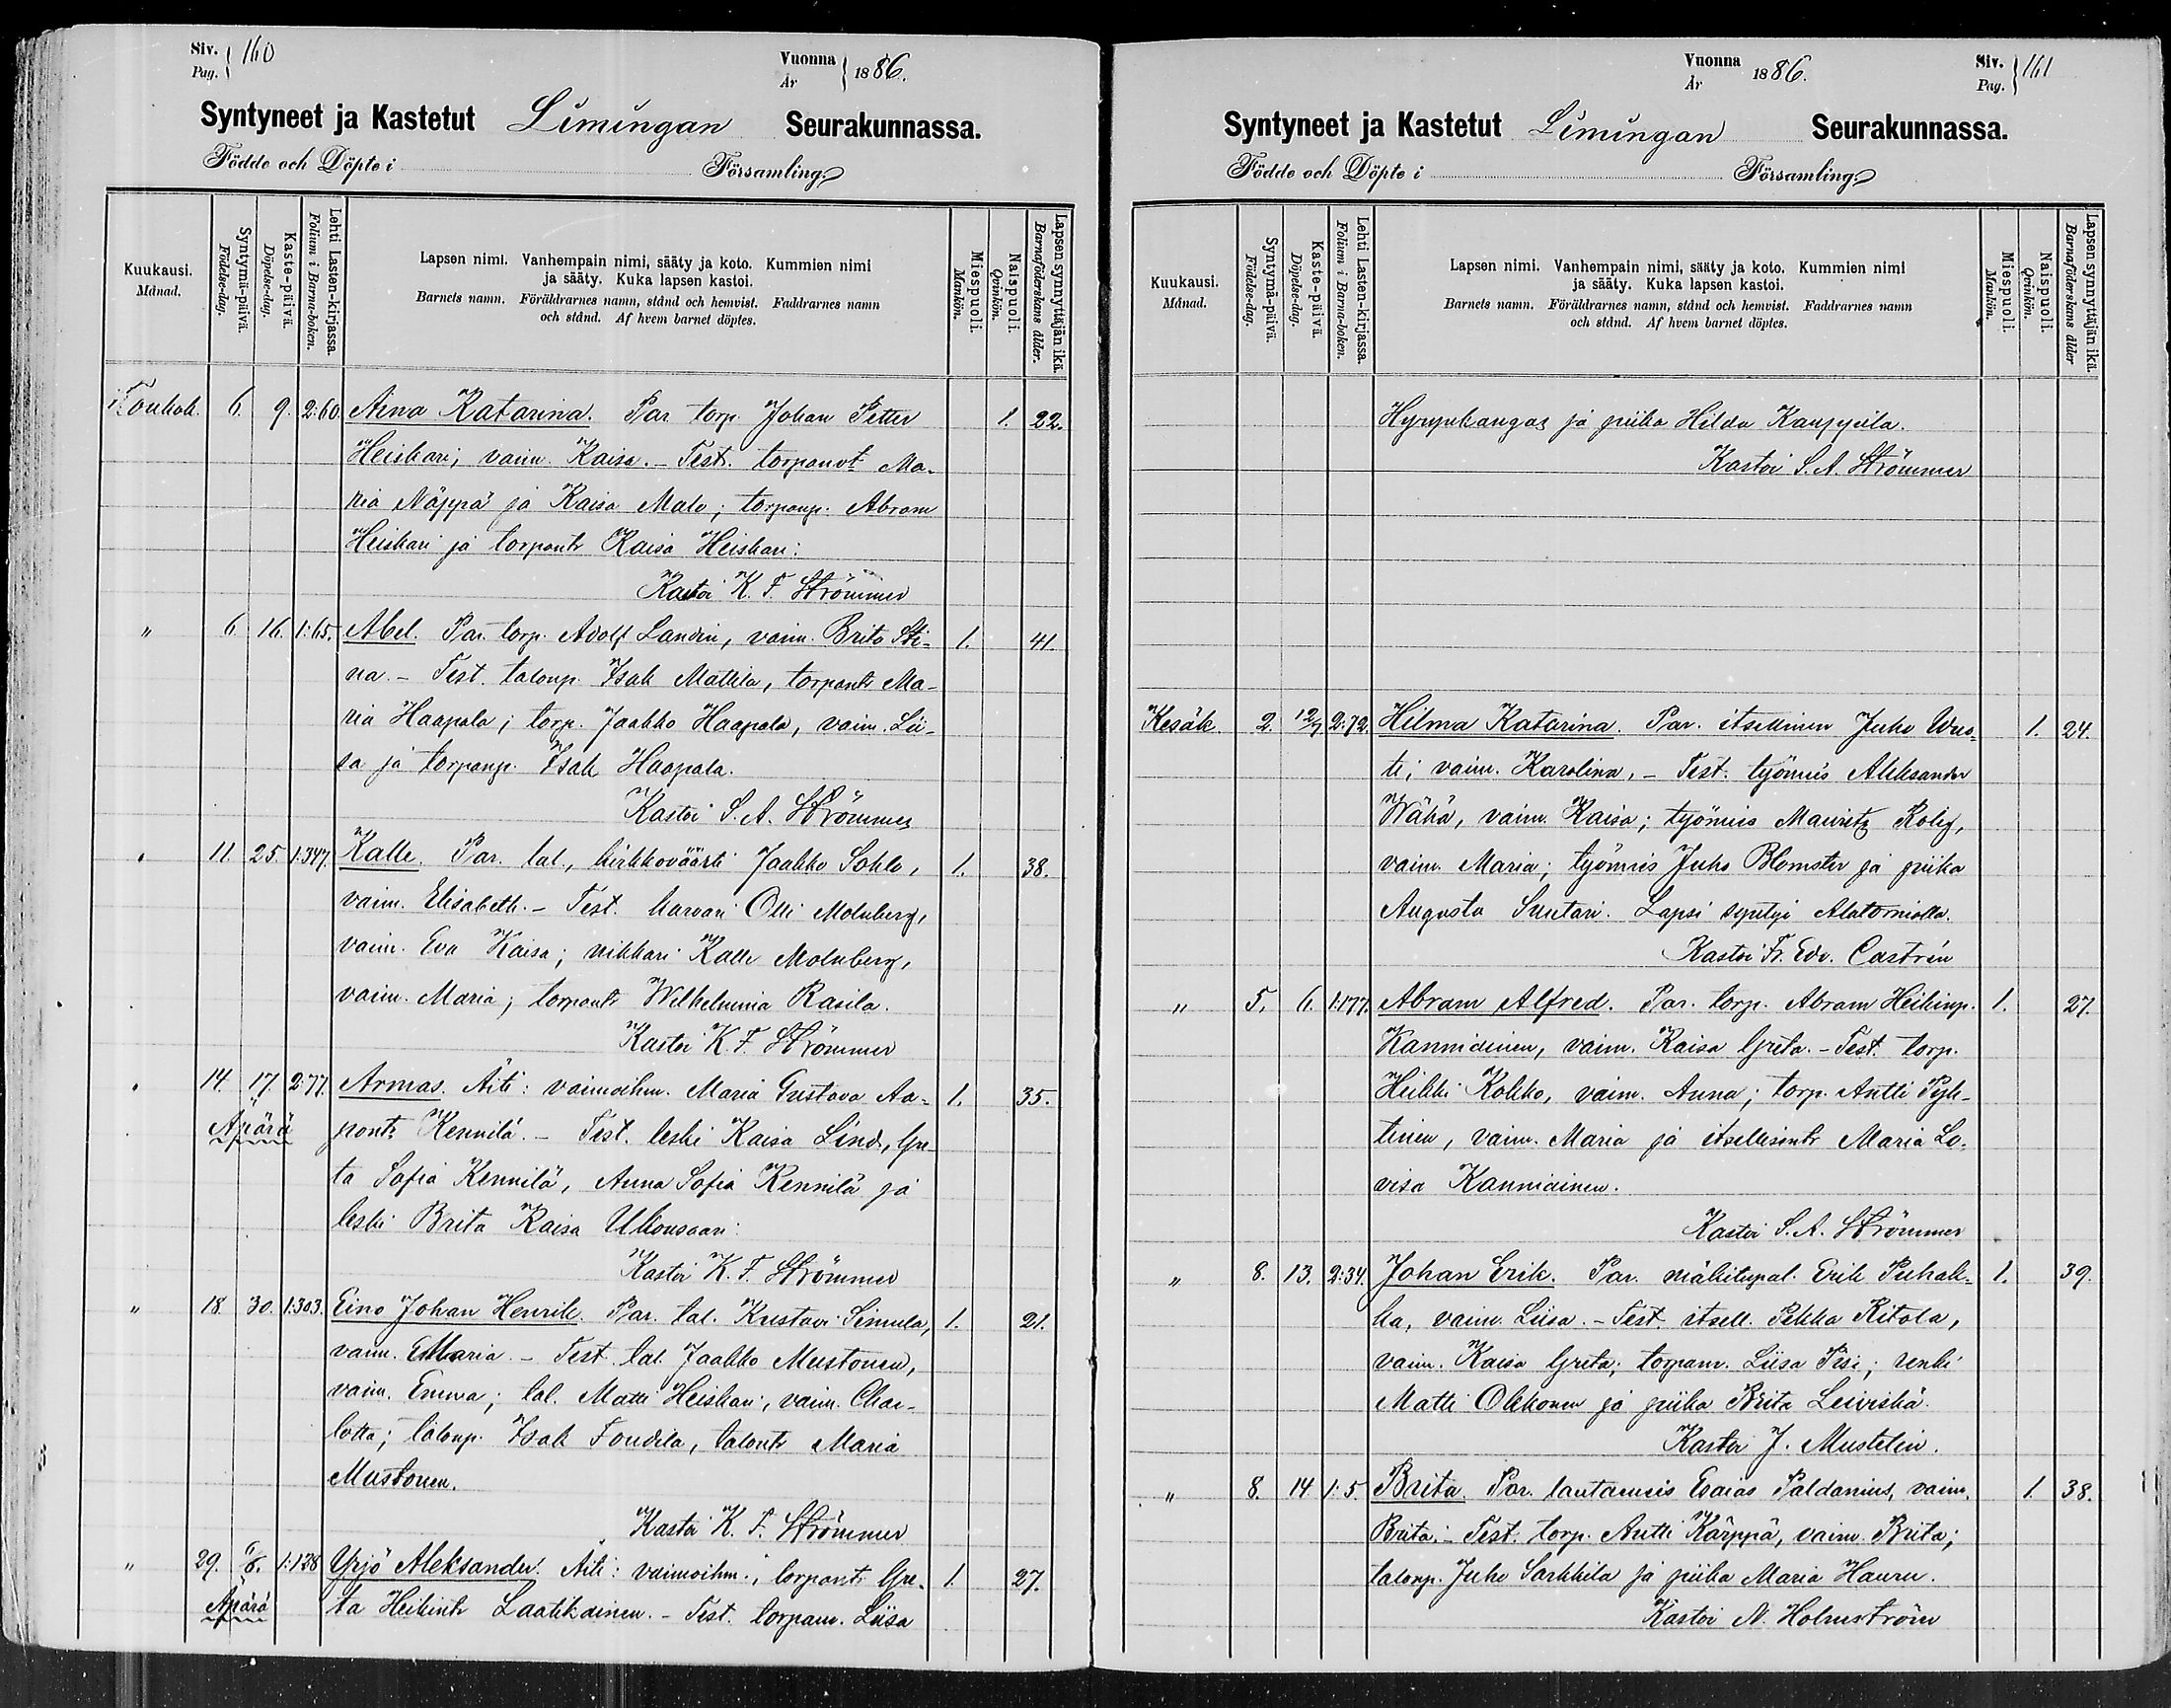 Siv. Pag. 160
Vuonna År 1886.
Syntyneet ja Kastetut Limingan Seurakunnassa.
Födde och Döpte i Församling.
Kuukausi. Månad.
Syntymä-päivä. Födelse-dag.
Kaste-päivä. Döpelse-dag.
Lehti Lasten-kirjassa. Folium i Barna-boken.
Lapsen nimi. Vanhempain nimi, sääty ja koto. Kummien nimi
ja sääty. Kuka lapsen kastoi.
Barnets namn. Föräldrarnes namn, stånd och hemvist. Faddrarnes namn
och stånd. Af hvem barnet döptes.
Miespuoli. Mankön.
Naispuoli. Qvinkön.
Lapsen synnyttäjän ikä. Barnaföderskans ålder.
Toukok. 6. 9. 2:60. Aina Katarina. Par. torp. Johan Petter 1. 22.
Heiskari; vaim. Kaisa. - Test. torpanot. Ma-
ria Näppä ja Kaisa Malo; torpanp. Abram
Heiskari ja torpantr Kaisa Heiskari:
Kastoi K. F. Strömmer
" 6 16. 1:65. Abel. Par. torp. Adolf Landin, vaim. Brita Sti- 1. 41.
na. - Test. talonp. Isak Mattila, torpantr Ma-
ria Haapala; torp. Jaakko Haapala, vaim. Lii-
sa ja torpanp. Isak Haapala.
Kastoi S. A. Strömmer
" 11. 25. 1:347. Kalle. Par. tal., kirkkoväärti Jaakko Sohlo, 1. 38.
vaim. Elisabeth. - Test. karvari Olli Molnberg,
vaim. Eva Kaisa; nikkari Kalle Molnberg,
vaim. Maria; torpantr Wilhelmina Rasila.
Kastoi K. F. Strömmer
" 14. 17. 2:77. Armas. Äiti: vaimoihm. Maria Gustava Aa- 1. 35.
Äpärä pontr Kennilä. - Test. leski Kaisa Lind, Gre-
ta Sofia Kennilä, Anna Sofia Kennilä ja
leski Brita Kaisa Ulkonsaari:
Kastoi K. F. Strömmer
" 18. 30. 1:303. Eino Johan Henrik. Par. tal. Kustavi Simula, 1. 21.
vaim. Maria. - Test. tal. Jaakko Mustonen,
vaim. Emma; tal. Matti Heiskari, vaim. Char-
lotta; talonp. Isak Toudila, talontr Maria
Mustonen.
Kastoi K. F. Strömmer
" 29. 6/6. 1:128 Yrjö Aleksander. Äiti: vaimoihm.; torpantr Gre- 1. 27.
Äpärä ta Heikintr Laatikainen. - Test. torpanv. Liisa
Vuonna År 1886.
Siv. Pag. 161
Syntyneet ja Kastetut Limingan Seurakunnassa.
Födde och Döpte i Församling.
Kuukausi. Månad.
Syntymä-päivä. Födelse-dag.
Kaste-päivä. Döpelse-dag.
Lehti Lasten-kirjassa. Folium i Barna-boken.
Lapsen nimi. Vanhempain nimi, sääty ja koto. Kummien nimi
ja sääty. Kuka lapsen kastoi.
Barnets namn. Föräldrarnes namn, stånd och hemvist. Faddrarnes namn
och stånd. Af hvem barnet döptes.
Miespuoli. Mankön.
Naispuoli. Qvinkön.
Lapsen synnyttäjän ikä. Barnaföderskans ålder
Hyrynkangas ja piika Hilda Kauppila.
Kastoi S. A. Strömmer
Kesäk. 2. 12/7 2:72. Hilma Katarina. Par. itsellinen Juho Wuo- 1. 24.
ti; vaim. Karolina. - Test. työmies Aleksander
Wähä, vaim. Kaisa; työmies Mauritz Kolig,
vaim. Maria; työmies Juho Blomster ja piika
Augusta Suutari. Lapsi syntyi Alatorniolla.
Kastoi Fr. Edv. Castrén
" 5. 6. 1:177. Abram Alfred. Par. torp. Abram Heikinp. 1. 27.
Kanniainen, vaim. Kaisa Greta. - Test. torp.
Heikki Kokko, vaim. Anna; torp. Antti Pyh-
tinen, vaim. Maria ja itsellisentr Maria Lo-
visa Kanniainen.
Kastoi S. A. Strömmer
" 8. 13. 2:34. Johan Erik. Par. mäkitupal. Erik Puhak- 1. 39.
ka, vaim. Liisa. - Test. itsell. Pekka Ritola,
vaim. Kaisa Greta; torpanv. Liisa Pisi; renki
Matti Okkonen ja piika Brita Leiviskä.
Kastoi J. Mustelin.
" 8. 14 1:5. Brita. Par. lautamies Esaias Paldanius, vaim. 1. 38.
Brita. - Test. torp. Antti Kärppä, vaim. Brita;
talonp. Juho Sarkkila ja piika Maria Hauru.
Kastoi N. Holmström